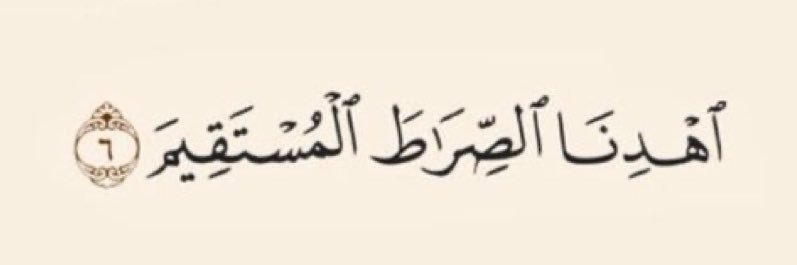 ٱهْدِنَا ٱلصِّرَٰطَ ٱلْمُسْتَقِيمَ ٦